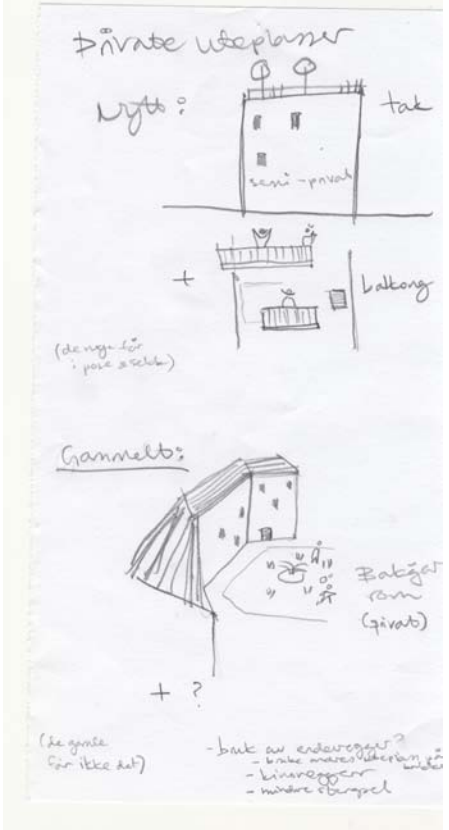 Private uteplasser
Nytt:
tak
semi-privat
+
balkong
(de nye får
i pose & sekk)
Gammelt:
Bakgår
rom
(privat)
+ ?
(de gamle
får ikke det)
- bruk av endevegger?
- bruke andres uteplass på
- kinovegger
- mindre